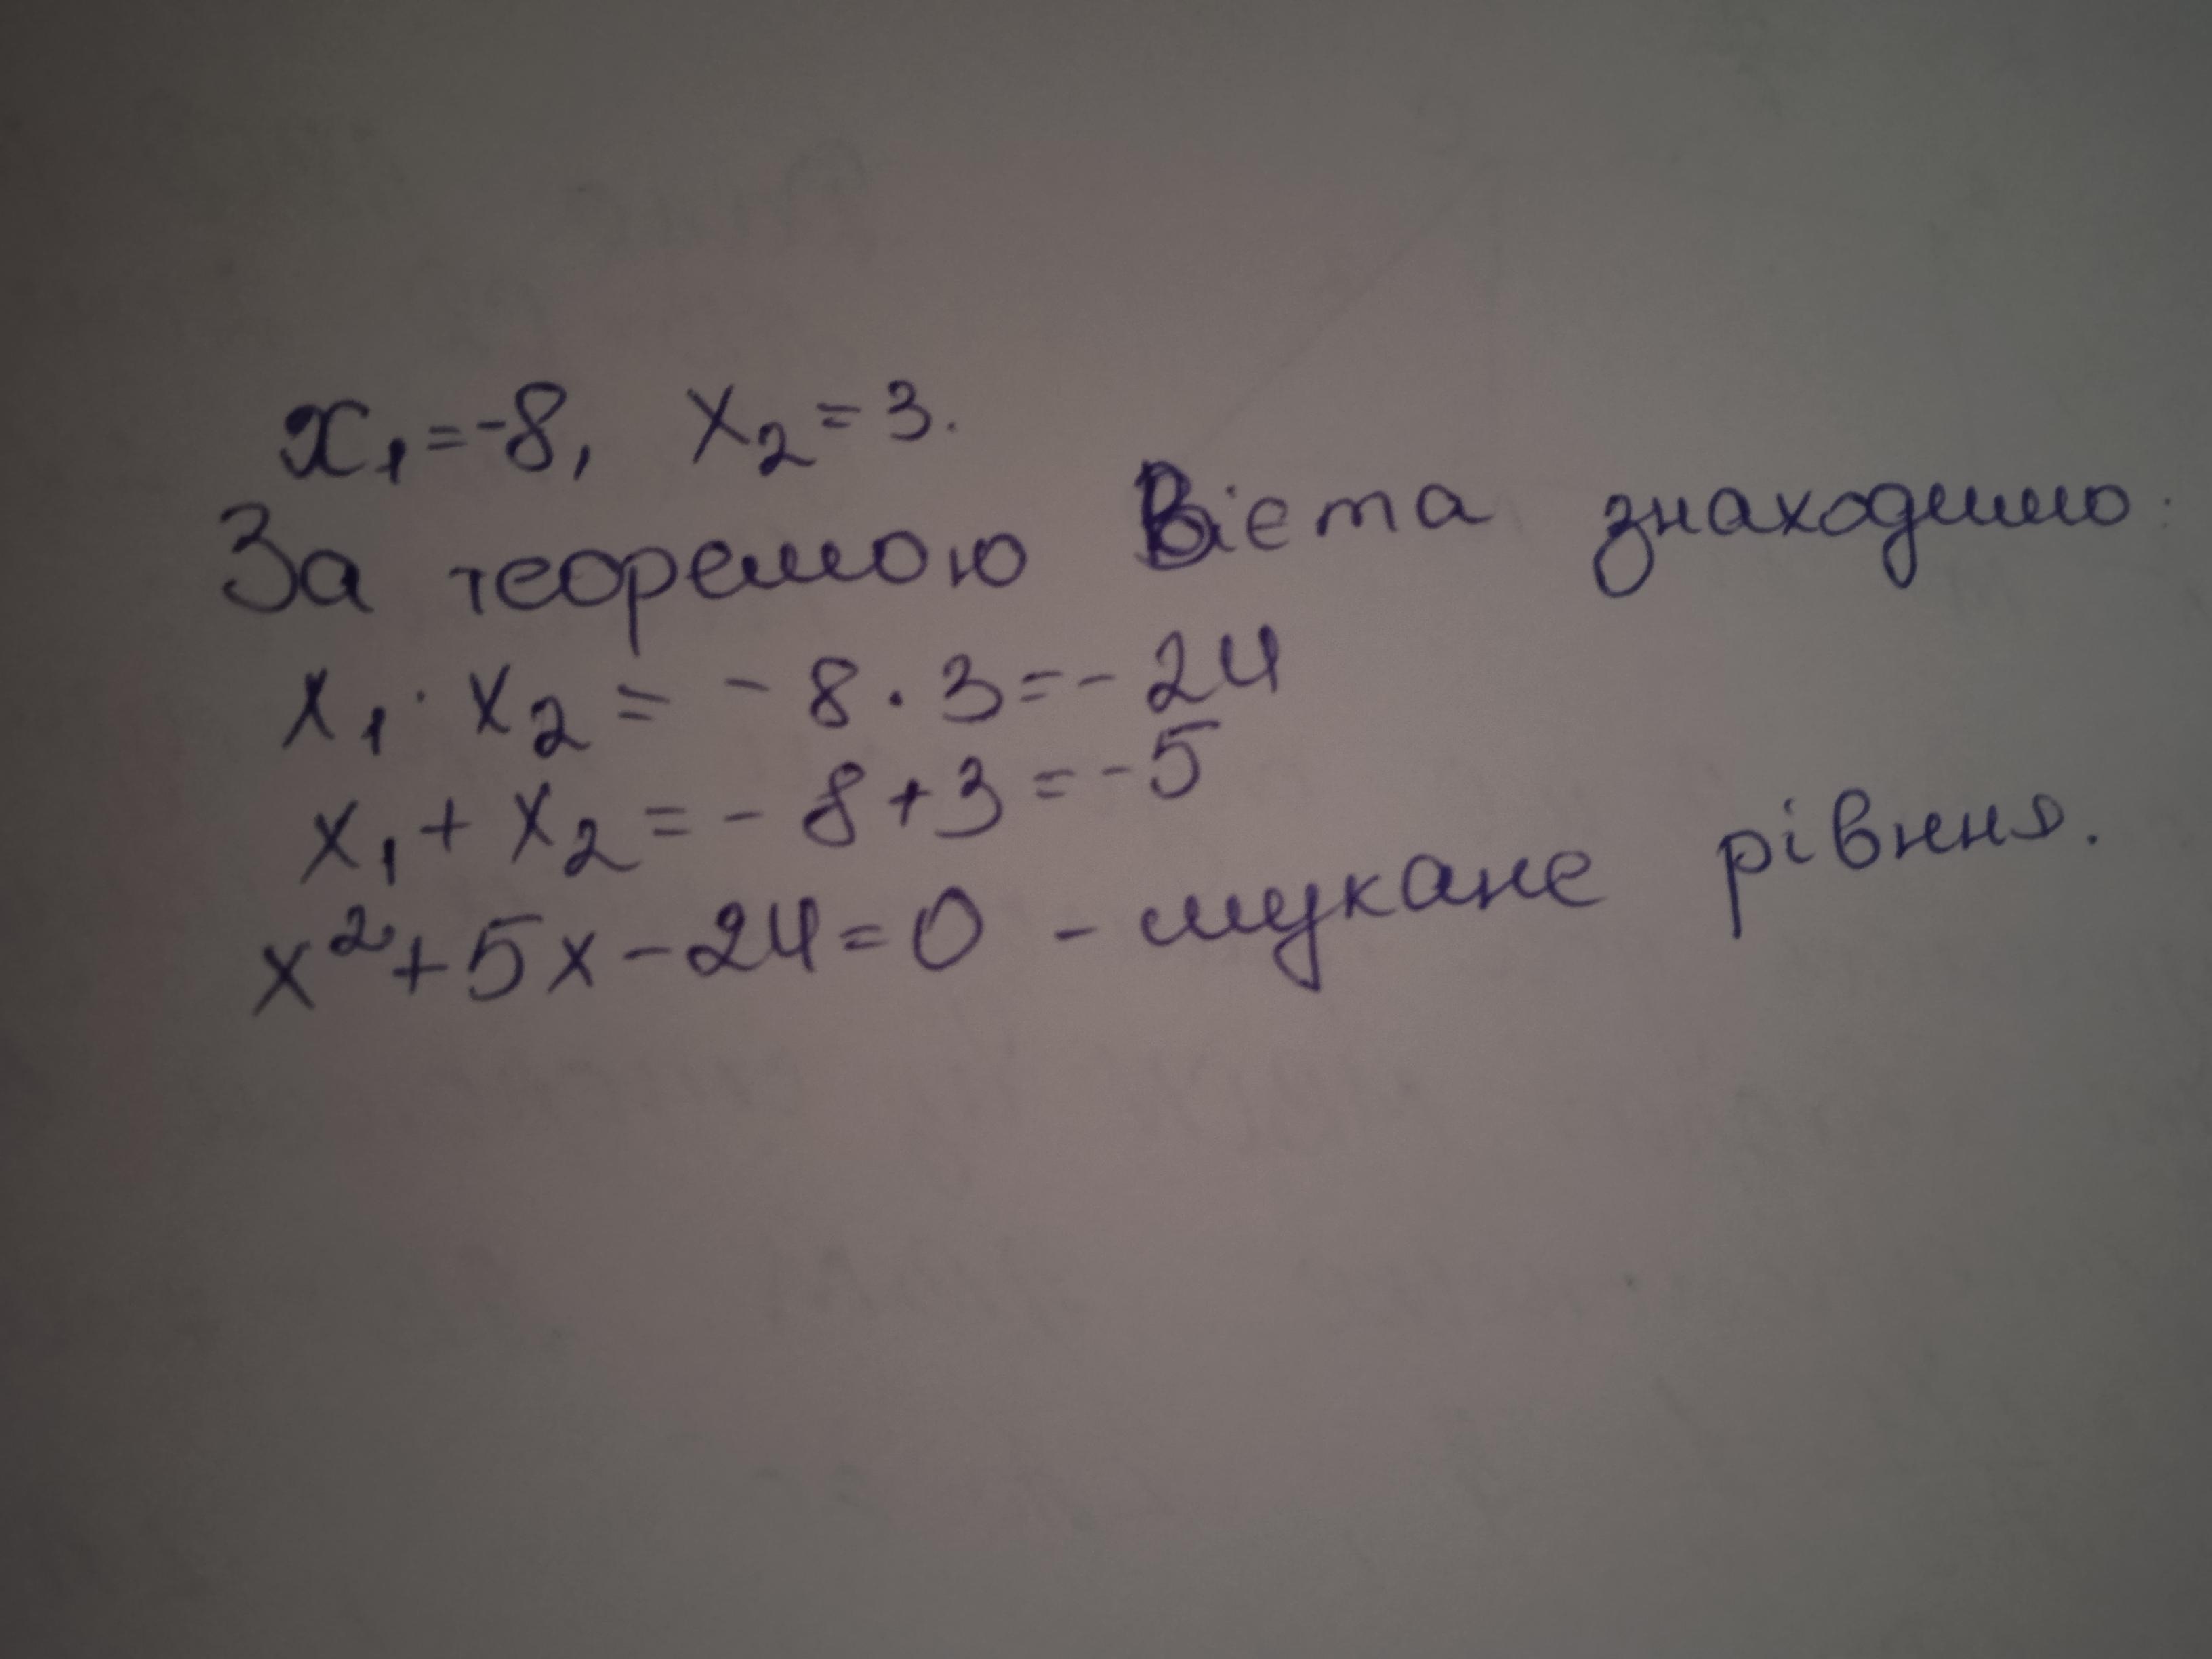 x₁=-8, x₂=3.
За теоремою Вієта знаходимо:
x₁·x₂=-8·3=-24
x₁+x₂=-8+3=-5
x²+5x-24=0 - шукане рівння.